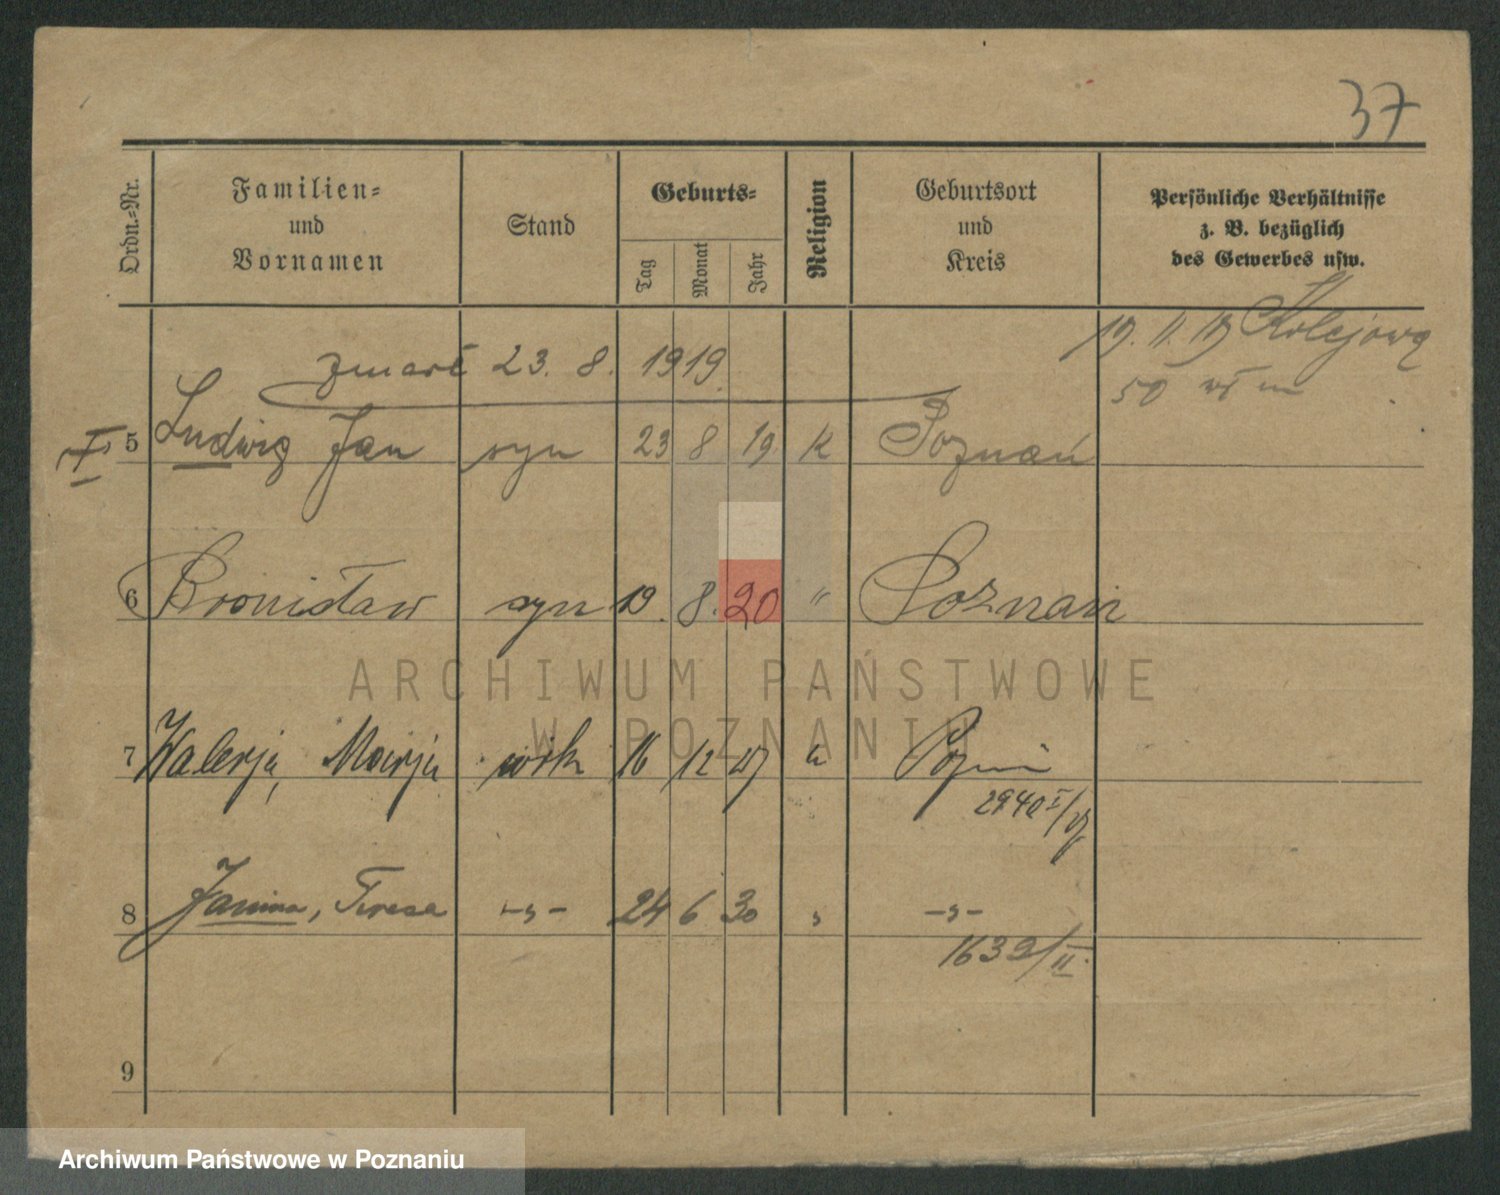 37
Ordn.=Nr.
Familien=
und
Vornamen
Stand
Geburts=
Tag
Monat
Jahr
Religion
Geburtsort
und
Kreis
Persönliche Verhältnisse
z. B. bezüglich
des Gewerbes usw.
19. 11. 19 Kolejowa
50
zmarł 23. 8. 1919
5 Ludwig Jan syn 23 8 19 K Poznań
6 Bronisław syn 19. 8. 20 " Poznań
7 Walerja, Marja 16 12 27 Pozn
2940 I/27
8 Janina, Teresa -„- 24 6 30 „ -„-
1639/II
9
ARCHIWUM PAŃSTWOWE
W POZNANIU
Archiwum Państwowe w Poznaniu